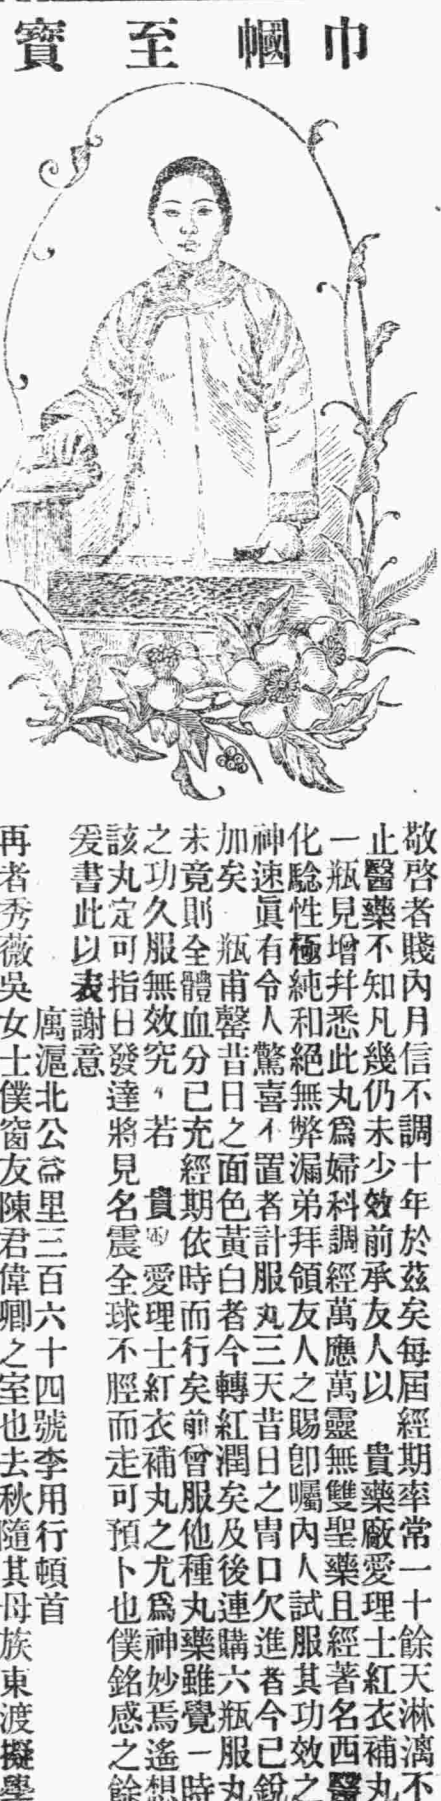 巾幗至寶
敬啓者賤內月信不調十年於茲矣每屆經期率常一十餘天淋漓不
止醫藥不知凡幾仍未少效前承友人以 貴藥廠愛理士紅衣補丸
一瓶見增幷悉此丸爲婦科調經萬應萬靈無雙聖藥且經著名西醫
化騐性極純和絕無弊漏弟拜領友人之賜卽囑內人試服其功效之
神速眞有令人驚喜不置者計服丸三天昔日之胃口欠進者今已銳
加矣 瓶甫罄昔日之面色黃白者今轉紅潤矣及後連購六瓶服丸
未竟則全體血分已充經期依時而行矣前曾服他種丸藥雖覺一時
之功久服無效究 若 貴 愛理士紅衣補丸之尤爲神妙焉遙想
該丸定可指日發達將見名震全球不脛而走可預卜也僕銘感之餘
爰書此以表謝意
寓滬北公益里三百六十四號李用行頓首
再者秀薇吳女士僕窗友陳君偉卿之室也去秋隨其母族東渡擬學